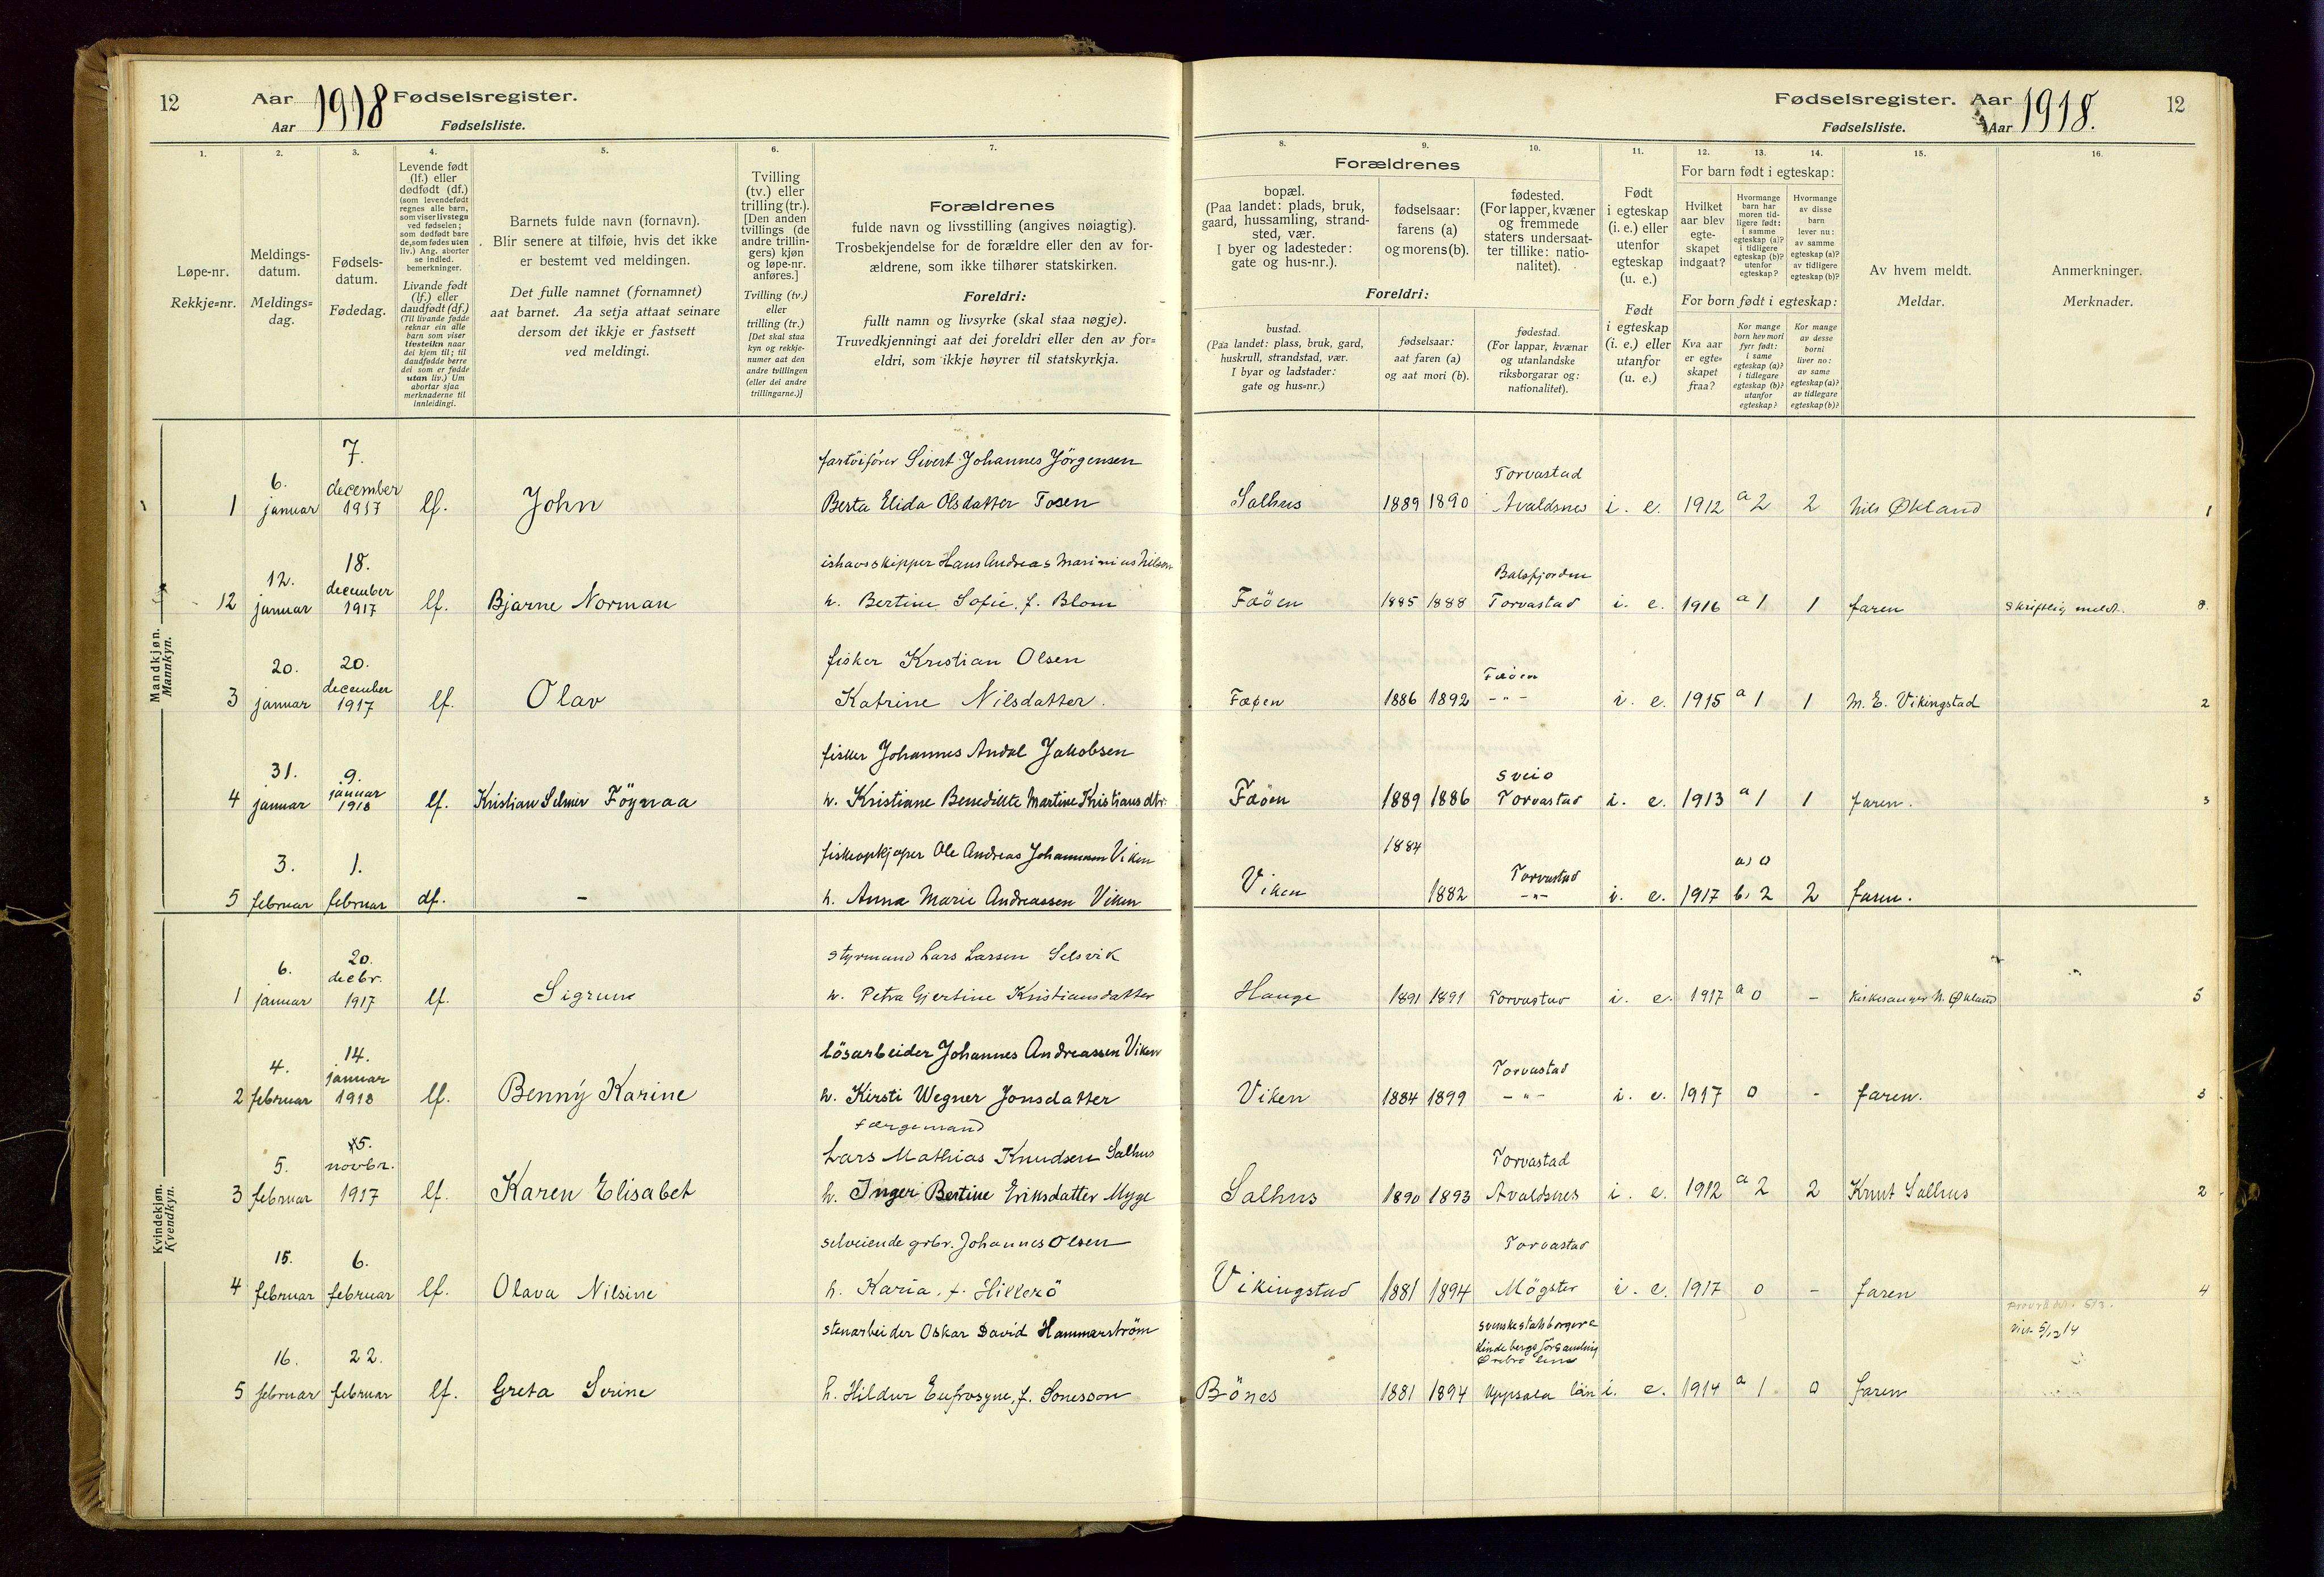 12 Aar 1918 Fødselsregister.
Aar Fødselsliste.
1. 2. 3. 4. 5. 6. 7.
Løpe-nr.
Rekkje=nr.
Meldings-
datum.
Meldings=
dag.
Fødsels-
datum.
Fødedag.
Levende født
(lf.) eller
dødfødt (df.)
(som levendefødt
regnes alle barn,
som viser livstegn
ved fødselen;
som dødfødt bare
de, som fødes uten
liv.) Ang. aborter
se indled.
bemerkninger.
Livande født
(lf.) eller
daudfødt (df.)
(Til livande fødde
reknar ein alle
barn som viser
livsteikn naar
dei kjem til; til
daudfødde berre
dei som er fødde
utan liv.) Um
abortar sjaa
merknaderne til
innleidingi.
Barnets fulde navn (fornavn).
Blir senere at tilføie, hvis det ikke
er bestemt ved meldingen.
Det fulle namnet (fornamnet)
aat barnet. Aa setja attaat seinare
dersom det ikkje er fastsett
ved meldingi.
Tvilling
(tv.) eller
trilling (tr.).
[Den anden
tvillings (de
andre trillin-
gers) kjøn
og løpe-nr.
anføres.]
Tvilling (tv.)
eller
trilling (tr.)
[Det skal staa
kyn og rekkje-
numer aat den
andre tvillingen
(eller dei andre
trillingarne.)]
Forældrenes
fulde navn og livsstilling (angives nøiagtig).
Trosbekjendelse for de forældre eller den av for-
ældrene, som ikke tilhører statskirken.
Foreldri:
fullt namn og livsyrke (skal staa nøgje).
Truvedkjenningi aat dei foreldri eller den av for=
eldri, som ikkje høyrer til statskyrkja.
Mandkjøn.
Mannkyn.
7.
fartöifører Sivert Johannes Jörgensen
6. december
1 januar 1917 lf. John Berta Elida Olsdatter Tosen
18. ishavsskipper Hans Andreas Marinius Nilsen
12. december
12 januar 1917 lf. Bjarne Norman h. Bertine Sofie, f. Blom
20. 20. fisker Kristian Olsen
december
3 januar 1917 lf. Olav Katrine Nilsdatter.
fisker Johannes Andal Jakobsen
31. 9.
januar
4 januar 1918 lf. Kristian Selmer Föynaa h. Kristiane Benedikte Martine Kristiansdtr.
3. 1. fiskeopkjøper Ole Andreas Johannesen Viken
5 februar februar df. – h. Anna Marie Andreassen Viken
Kvindekjøn.
Kvendkyn.
20. styrmand Lars Larsen Selsvik
6. decbr.
1 januar 1917 lf. Sigrun h. Petra Gjertine Kristiansdatter
14. lösarbeider Johannes Andreassen Viken
4. januar
2 februar 1918 lf. Benny Karine h. Kirsti Wegner Jonsdatter
færgemand
5. Lars Mathias Knudsen Salhus
5. novbr.
3 februar 1917 lf. Karen Elisabet h. Inger Bertine Eriksdatter Myge
selveiende grbr. Johannes Olsen
15. 6.
4 februar februar lf. Olava Nilsine h. Karia, f. Hillerö
stenarbeider Oskar David Hammarström
16. 22.
5 februar februar lf. Greta Serine h. Hildur Eufrosyne, f. Sonesson
Fødselsregister. Aar 1918. 12
Fødselsliste. Aar
8. 9. 10. 11. 12. 13. 14. 15. 16.
Forældrenes
bopæl.
(Paa landet: plads, bruk,
gaard, hussamling, strand-
sted, vær.
I byer og ladesteder:
gate og hus-nr.).
fødselsaar:
farens (a)
og morens(b).
fødested.
(For lapper, kvæner
og fremmede
staters undersaat-
ter tillike: natio-
nalitet).
Foreldri:
bustad.
(Paa landet: plass, bruk, gard,
huskrull, strandstad, vær.
I byar og ladstader:
gate og hus=nr.)
fødselsaar:
aat faren (a)
og aat mori (b).
fødestad.
(For lappar, kvænar
og utanlandske
riksborgarar og:
nationalitet).
Født
i egteskap
(i. e.) eller
utenfor
egteskap
(u. e.)
Født
i egteskap
(i. e.) eller
utanfor
(u. e.)
For barn født i egteskap:
Hvilket
aar blev
egte-
skapet
indgaat?
Hvormange
barn har
moren tid-
ligere født:
i samme
egteskap (a)?
i tidligere
egteskap (b)?
utenfor
egteskap?
Hvormange
av disse
barn
lever nu:
av samme
egteskap (a)?
av tidligere
egteskap (b)?
For born født i egteskap:
Kva aar
er egte=
skapet
fraa?
Kor mange
born hev mori
fyrr født:
i same
egteskap (a)?
i tidlegare
egteskap (b)?
utanfor
egteskap?
Kor mange
av desse
borni
liver no:
av same
egteskap (a)?
av tidlegare
egteskap (b)?
Av hvem meldt.
Meldar.
Anmerkninger.
Merknader.
Torvastad
Salhus 1889 1890 Avaldsnes i. e. 1912 a 2 2 Nils Økland 1
Balsfjorden
Fæöen 1885 1888 Torvastad i. e. 1916 a 1 1 faren skriftlig meldt. 8
Fæöen
Fæøen 1886 1892 –"– i. e. 1915 a 1 1 M. E. Vikingstad 2
Sveio
Fæöen 1889 1886 Torvastad i. e. 1913 a 1 1 faren. 3
1884 Torvastad a) 0
Viken 1882 –"– i. e. 1917 b) 2 2 faren.
Hauge 1891 1891 Torvastad i. e. 1917 a 0 – Kirkesanger N. Økland 5
Torvastad
Viken 1884 1899 –"– i. e. 1917 0 – faren. 3
Torvastad
Salhus 1890 1893 Avaldsnes i. e. 1912 a 2 2 Knut Salhus 2
Torvastad
Vikingstad 1881 1894 Mögster i. e. 1917 0 – faren 4
svenske statsborgere
Lindebergs Församling
Ørebro län
Bönes 1881 1894 Uppsala län i. e. 1914 a 1 0 faren